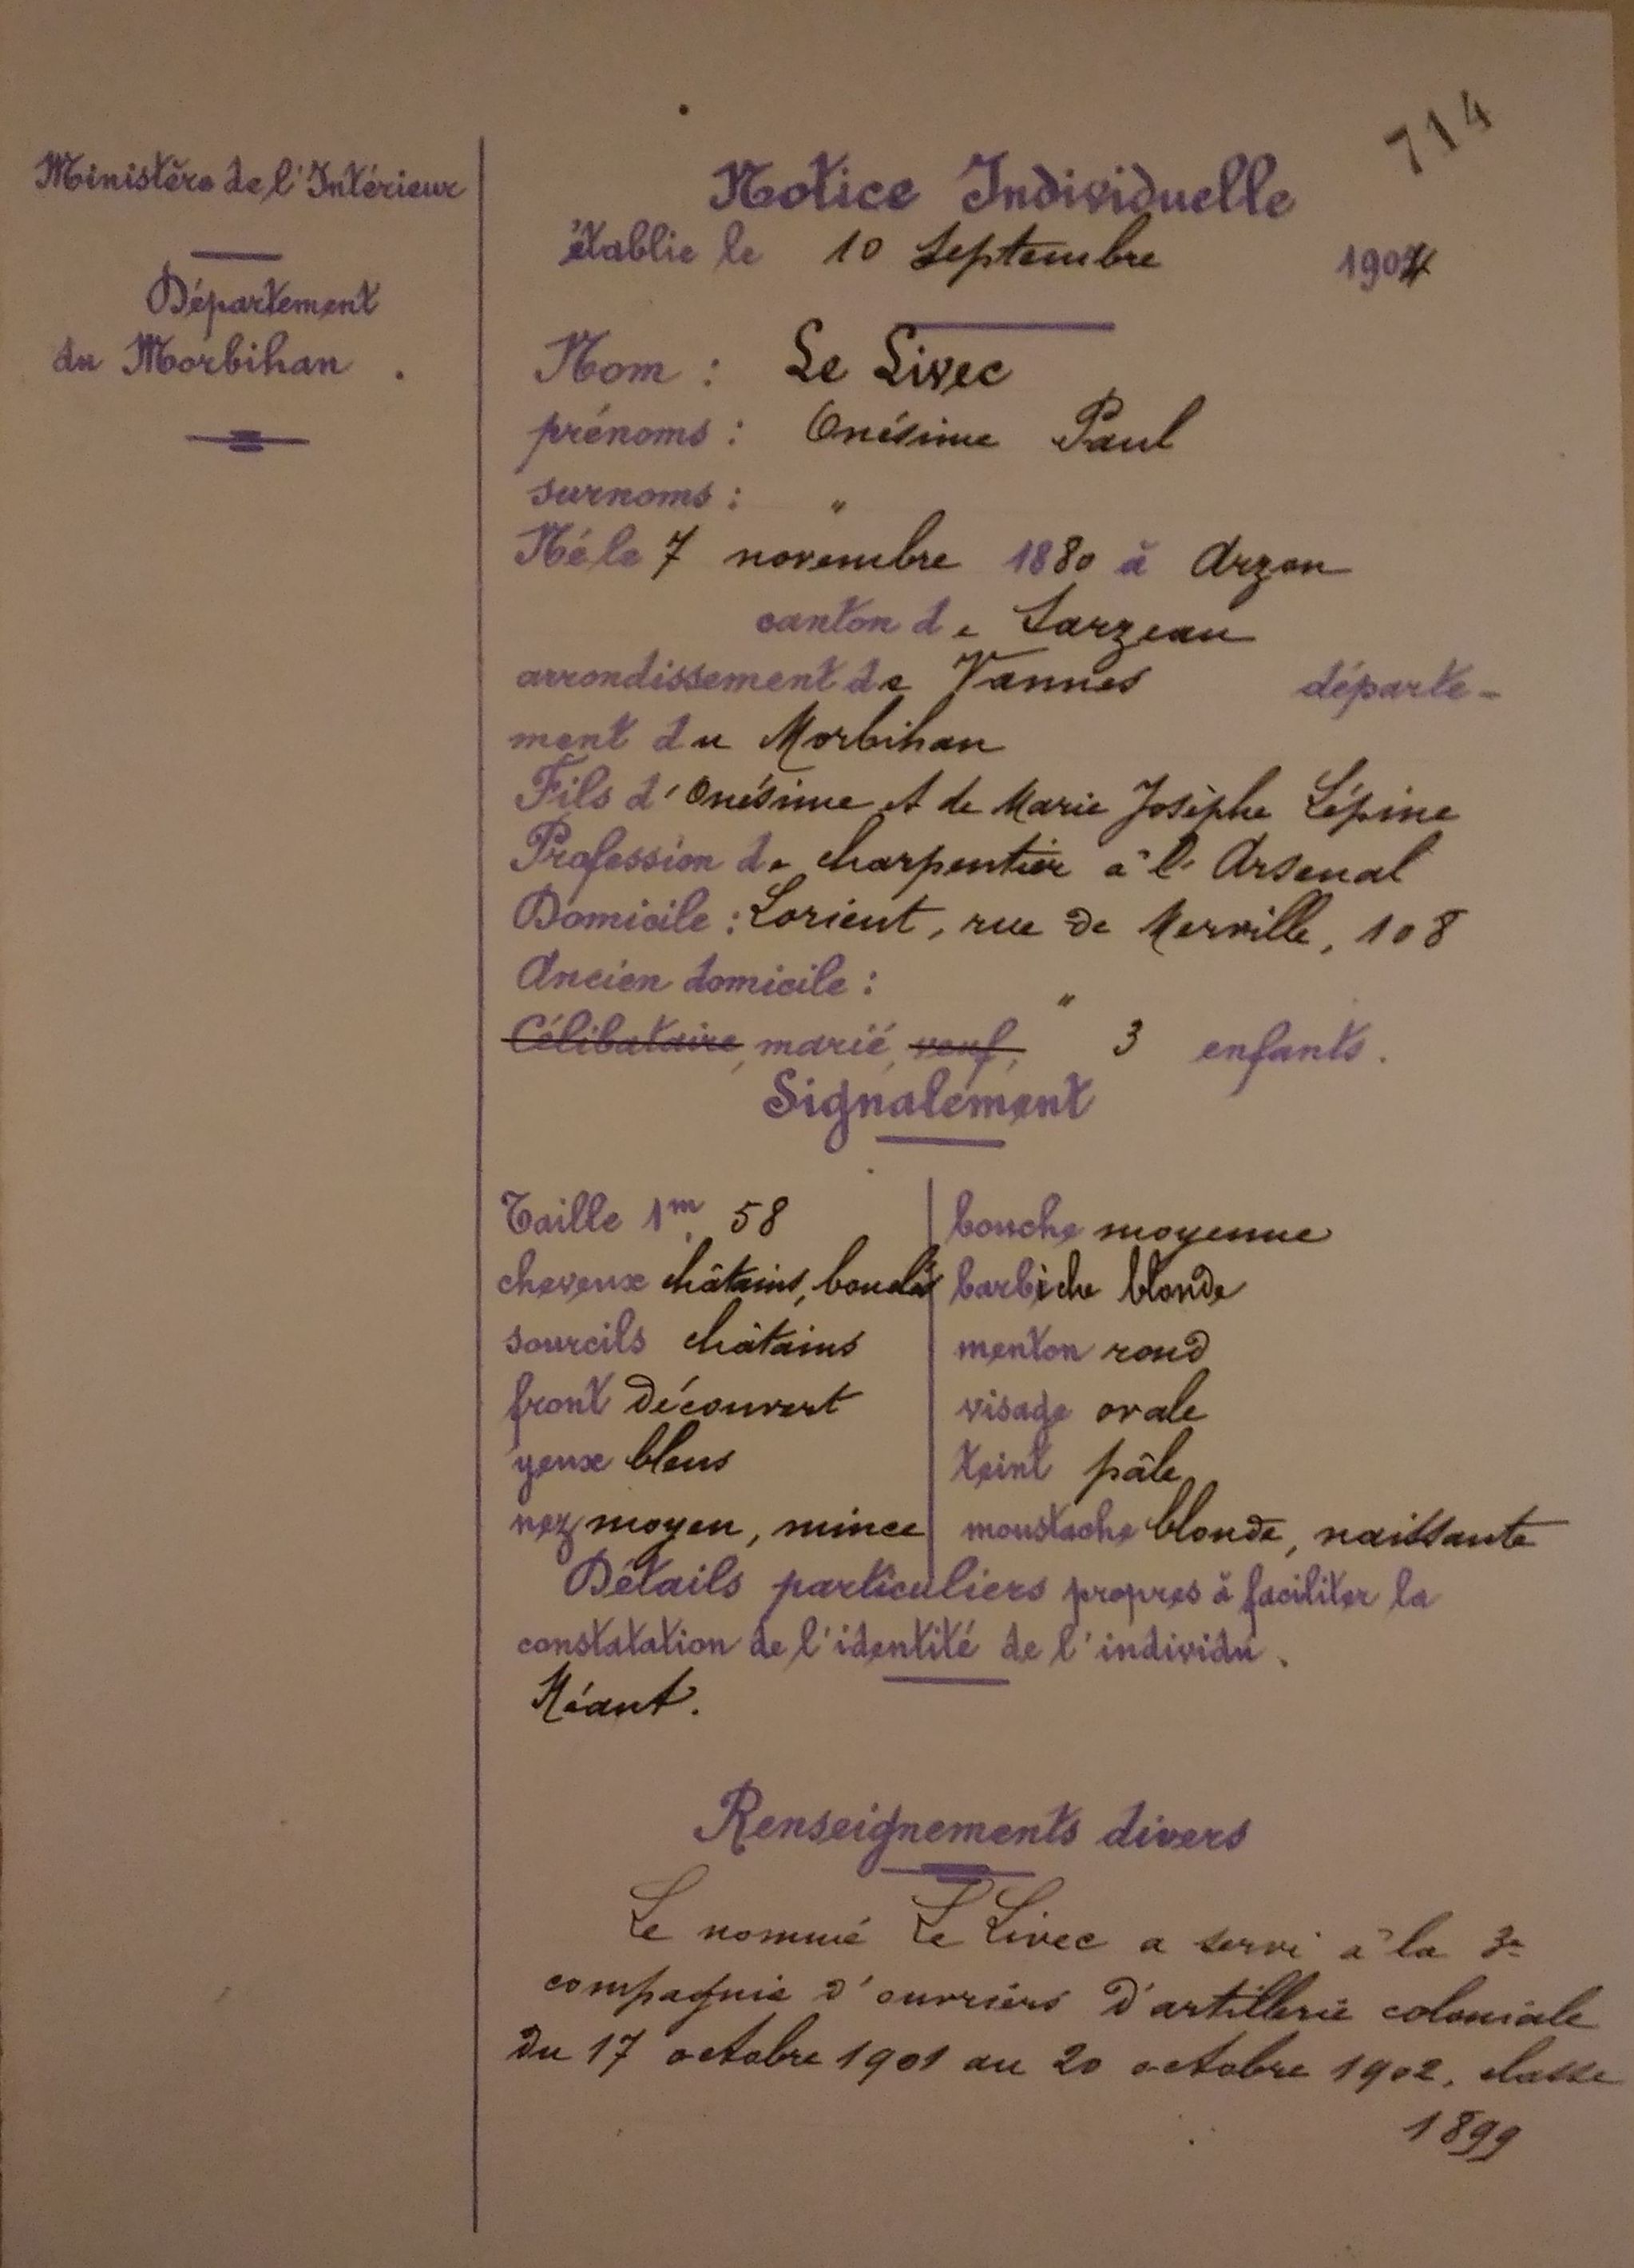 714
Ministère de l'Intérieur
Département
du Morbihan .
Notice Individuelle
établie le 10 Septembre 1904
Nom : Le Livec
prénoms : Onésime Paul
surnoms : "
Né le 7 novembre 1880 à Arzon
canton de Sarzeau
arrondissement de Vannes départe-
ment du Morbihan
Fils d'Onésime et de Marie Josèphe Lépine
Profession de charpentier à l'Arsenal
Domicile : Lorient, rue de Merville, 108
Ancien domicile : "
Célibataire, marié, veuf, 3 enfants.
Signalement
Taille 1m 58
cheveux châtains, bouclés
sourcils châtains
front découvert
yeux bleus
nez moyen, mince
bouche moyenne
barbiche blonde
menton rond
visage ovale
teint pâle
moustache blonde, naissante
Détails particuliers propres à faciliter la
constatation de l'identité de l'individu.
Néant.
Renseignements divers
Le nommé Le Livec a servi à la 3e
compagnie d'ouvriers d'artillerie coloniale
du 17 octobre 1901 au 20 octobre 1902, classe
1899